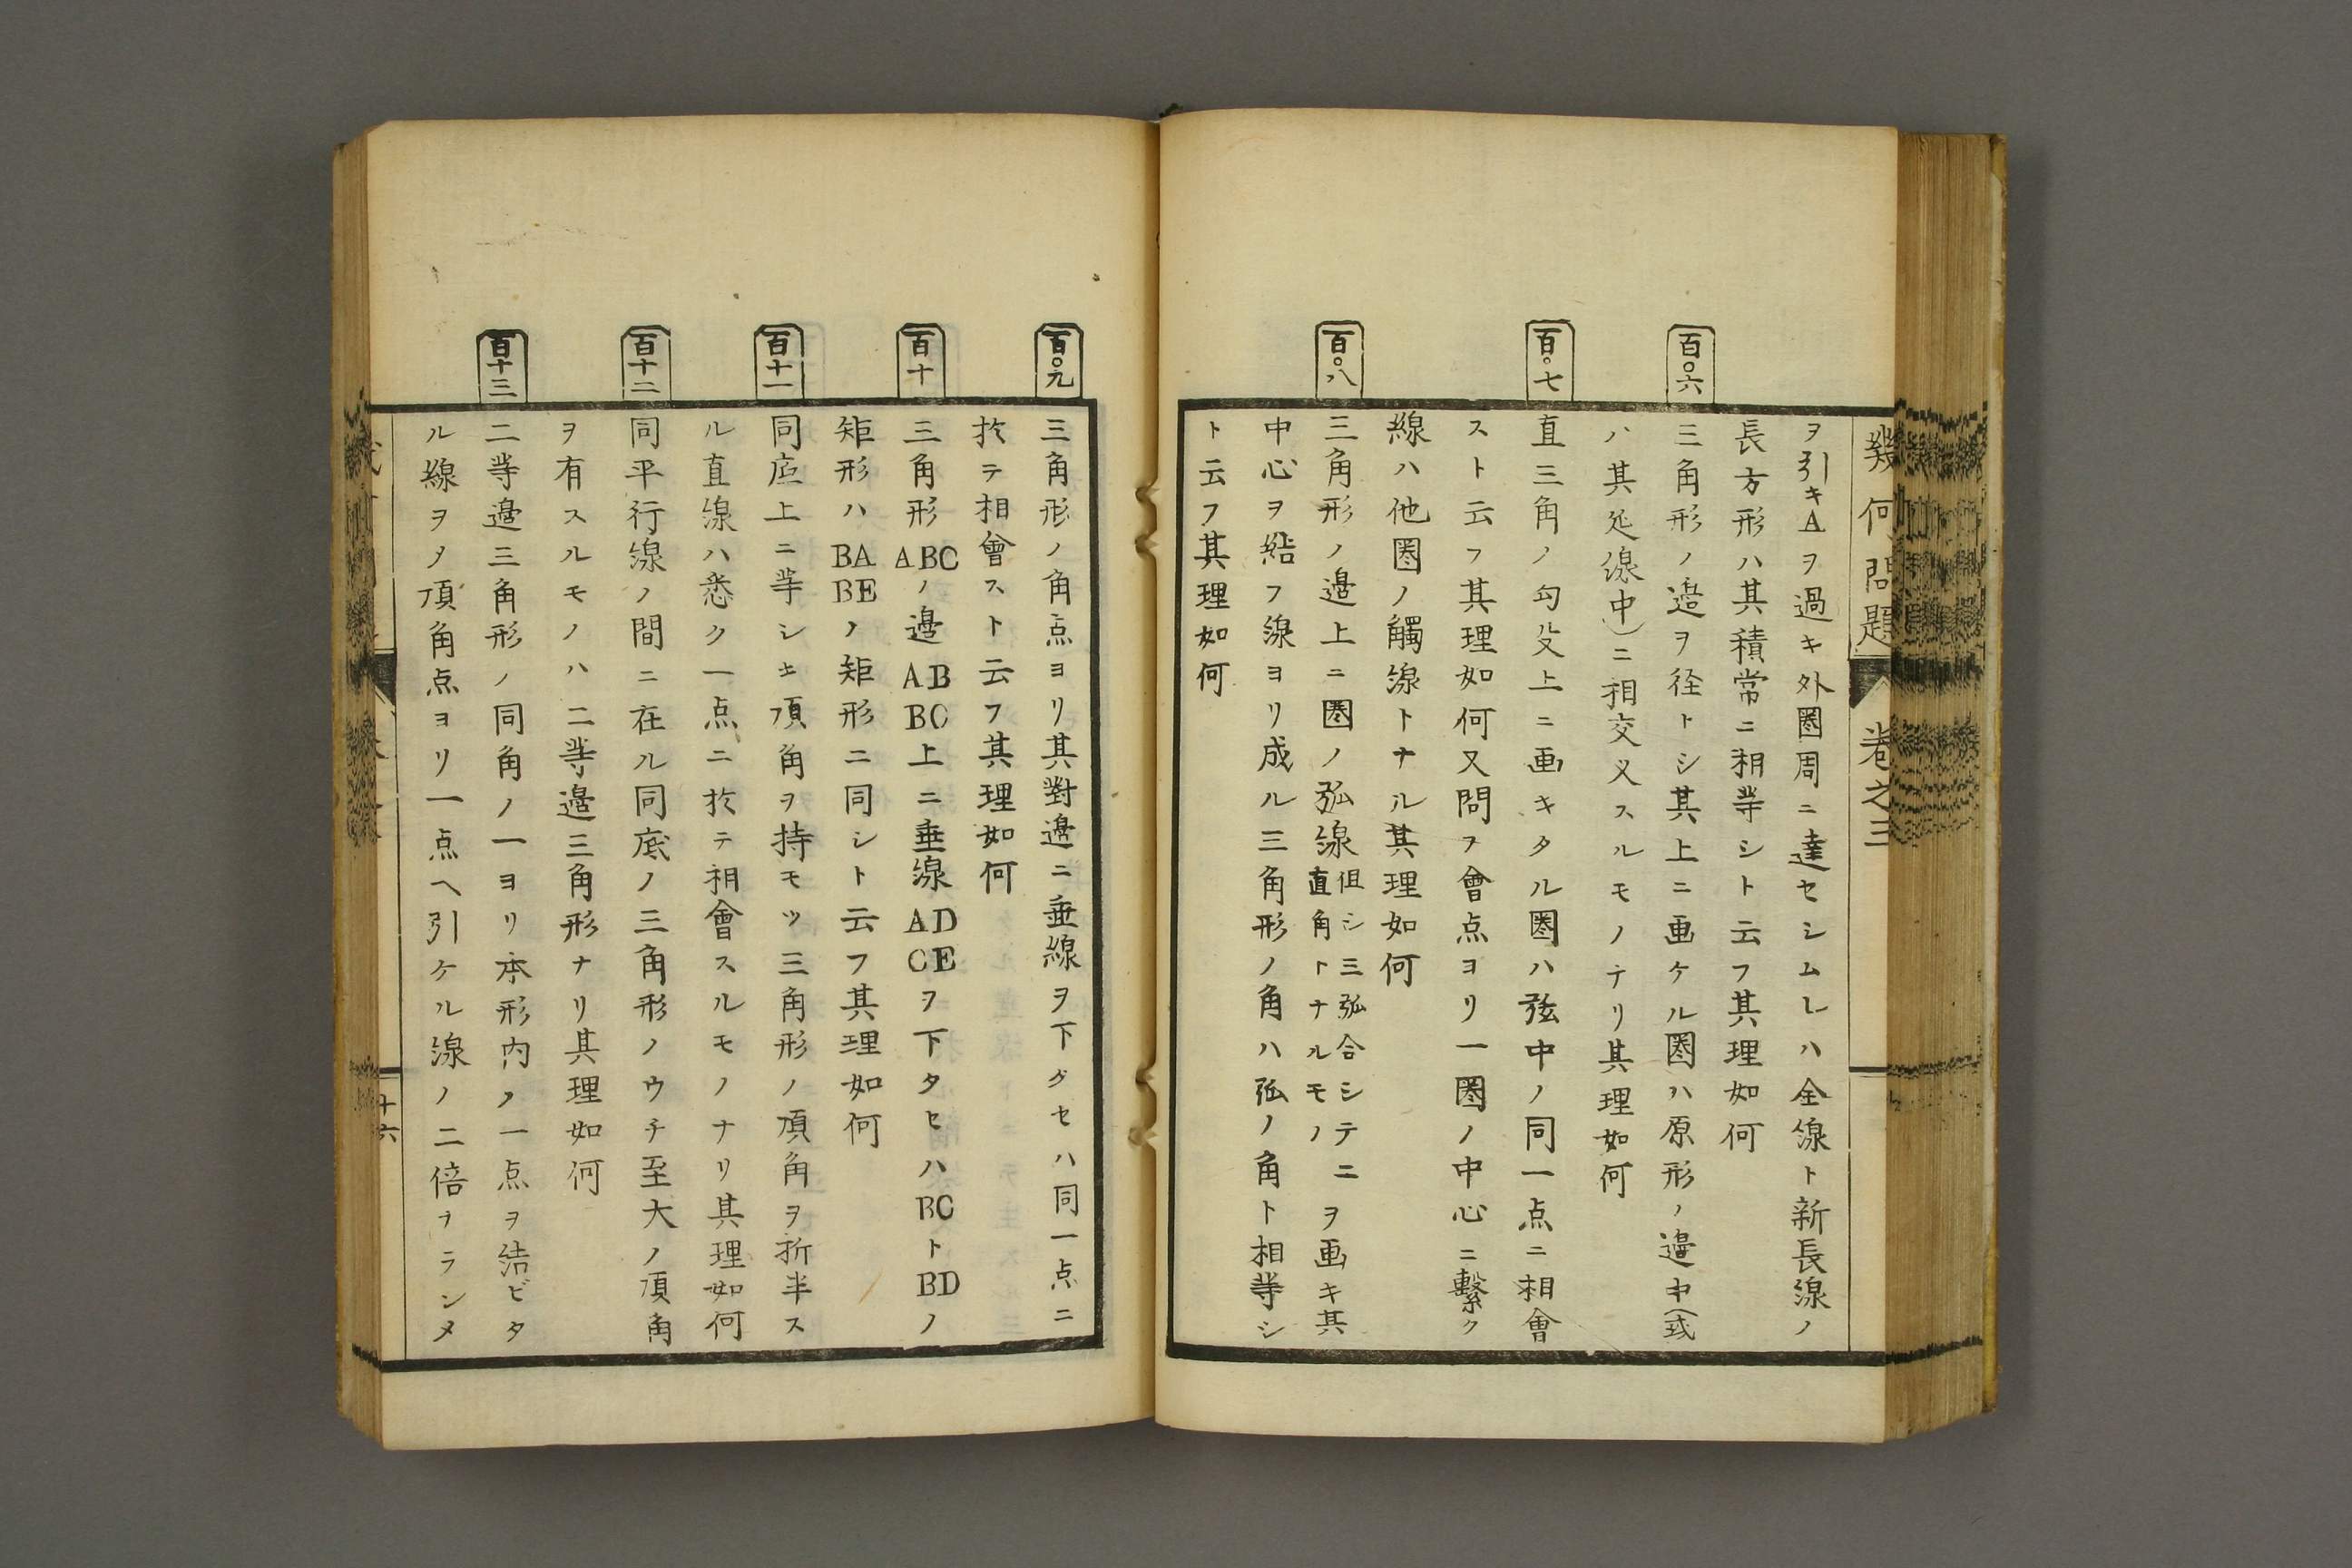 幾何問題
巻之三
ヲ引キAヲ過キ外圏周ニ達セシムレハ全線ト新長線ノ
長方形ハ其積常ニ相等シト云フ其理如何
百〇六
三角形ノ邉ヲ径トシ其上ニ画ケル圏ハ原形ノ邉中(或
ハ其延線中)ニ相交叉スルモノナリ其理如何
百〇七
直三角ノ勾殳上ニ画キタル圏ハ弦中ノ同一点ニ相會
スト云フ其理如何又問フ會点ヨリ一圏ノ中心ニ繫ク
線ハ他圏ノ觸線トナル其理如何
百〇八
三角形ノ邉上ニ圏ノ弧線但シ三弧合シテ二直角トナルモノヲ画キ其
中心ヲ結フ線ヨリ成ル三角形ノ角ハ弧ノ角ト相等シ
ト云フ其理如何
百〇九
三角形ノ角点ヨリ其對邉ニ垂線ヲ下タセハ同一点ニ
於テ相會スト云フ其理如何
百十
三角形ABCノ邉AB BC上ニ垂線AD CEヲ下タセハBCトBDノ
矩形ハBA BEノ矩形ニ同シト云フ其理如何
百十一
同底上ニ等シキ頂角ヲ持モツ三角形ノ頂角ヲ折半ス
ル直線ハ悉ク一点ニ於テ相會スルモノナリ其理如何
百十二
同平行線ノ間ニ在ル同底ノ三角形ノウチ至大ノ頂角
ヲ有スルモノハ二等邉三角形ナリ其理如何
百十三
二等邉三角形ノ同角ノ一ヨリ本形内ノ一点ヲ結ビタ
ル線ヲノ頂角点ヨリ一点ヘ引ケル線ノ二倍ナラシメ
十六